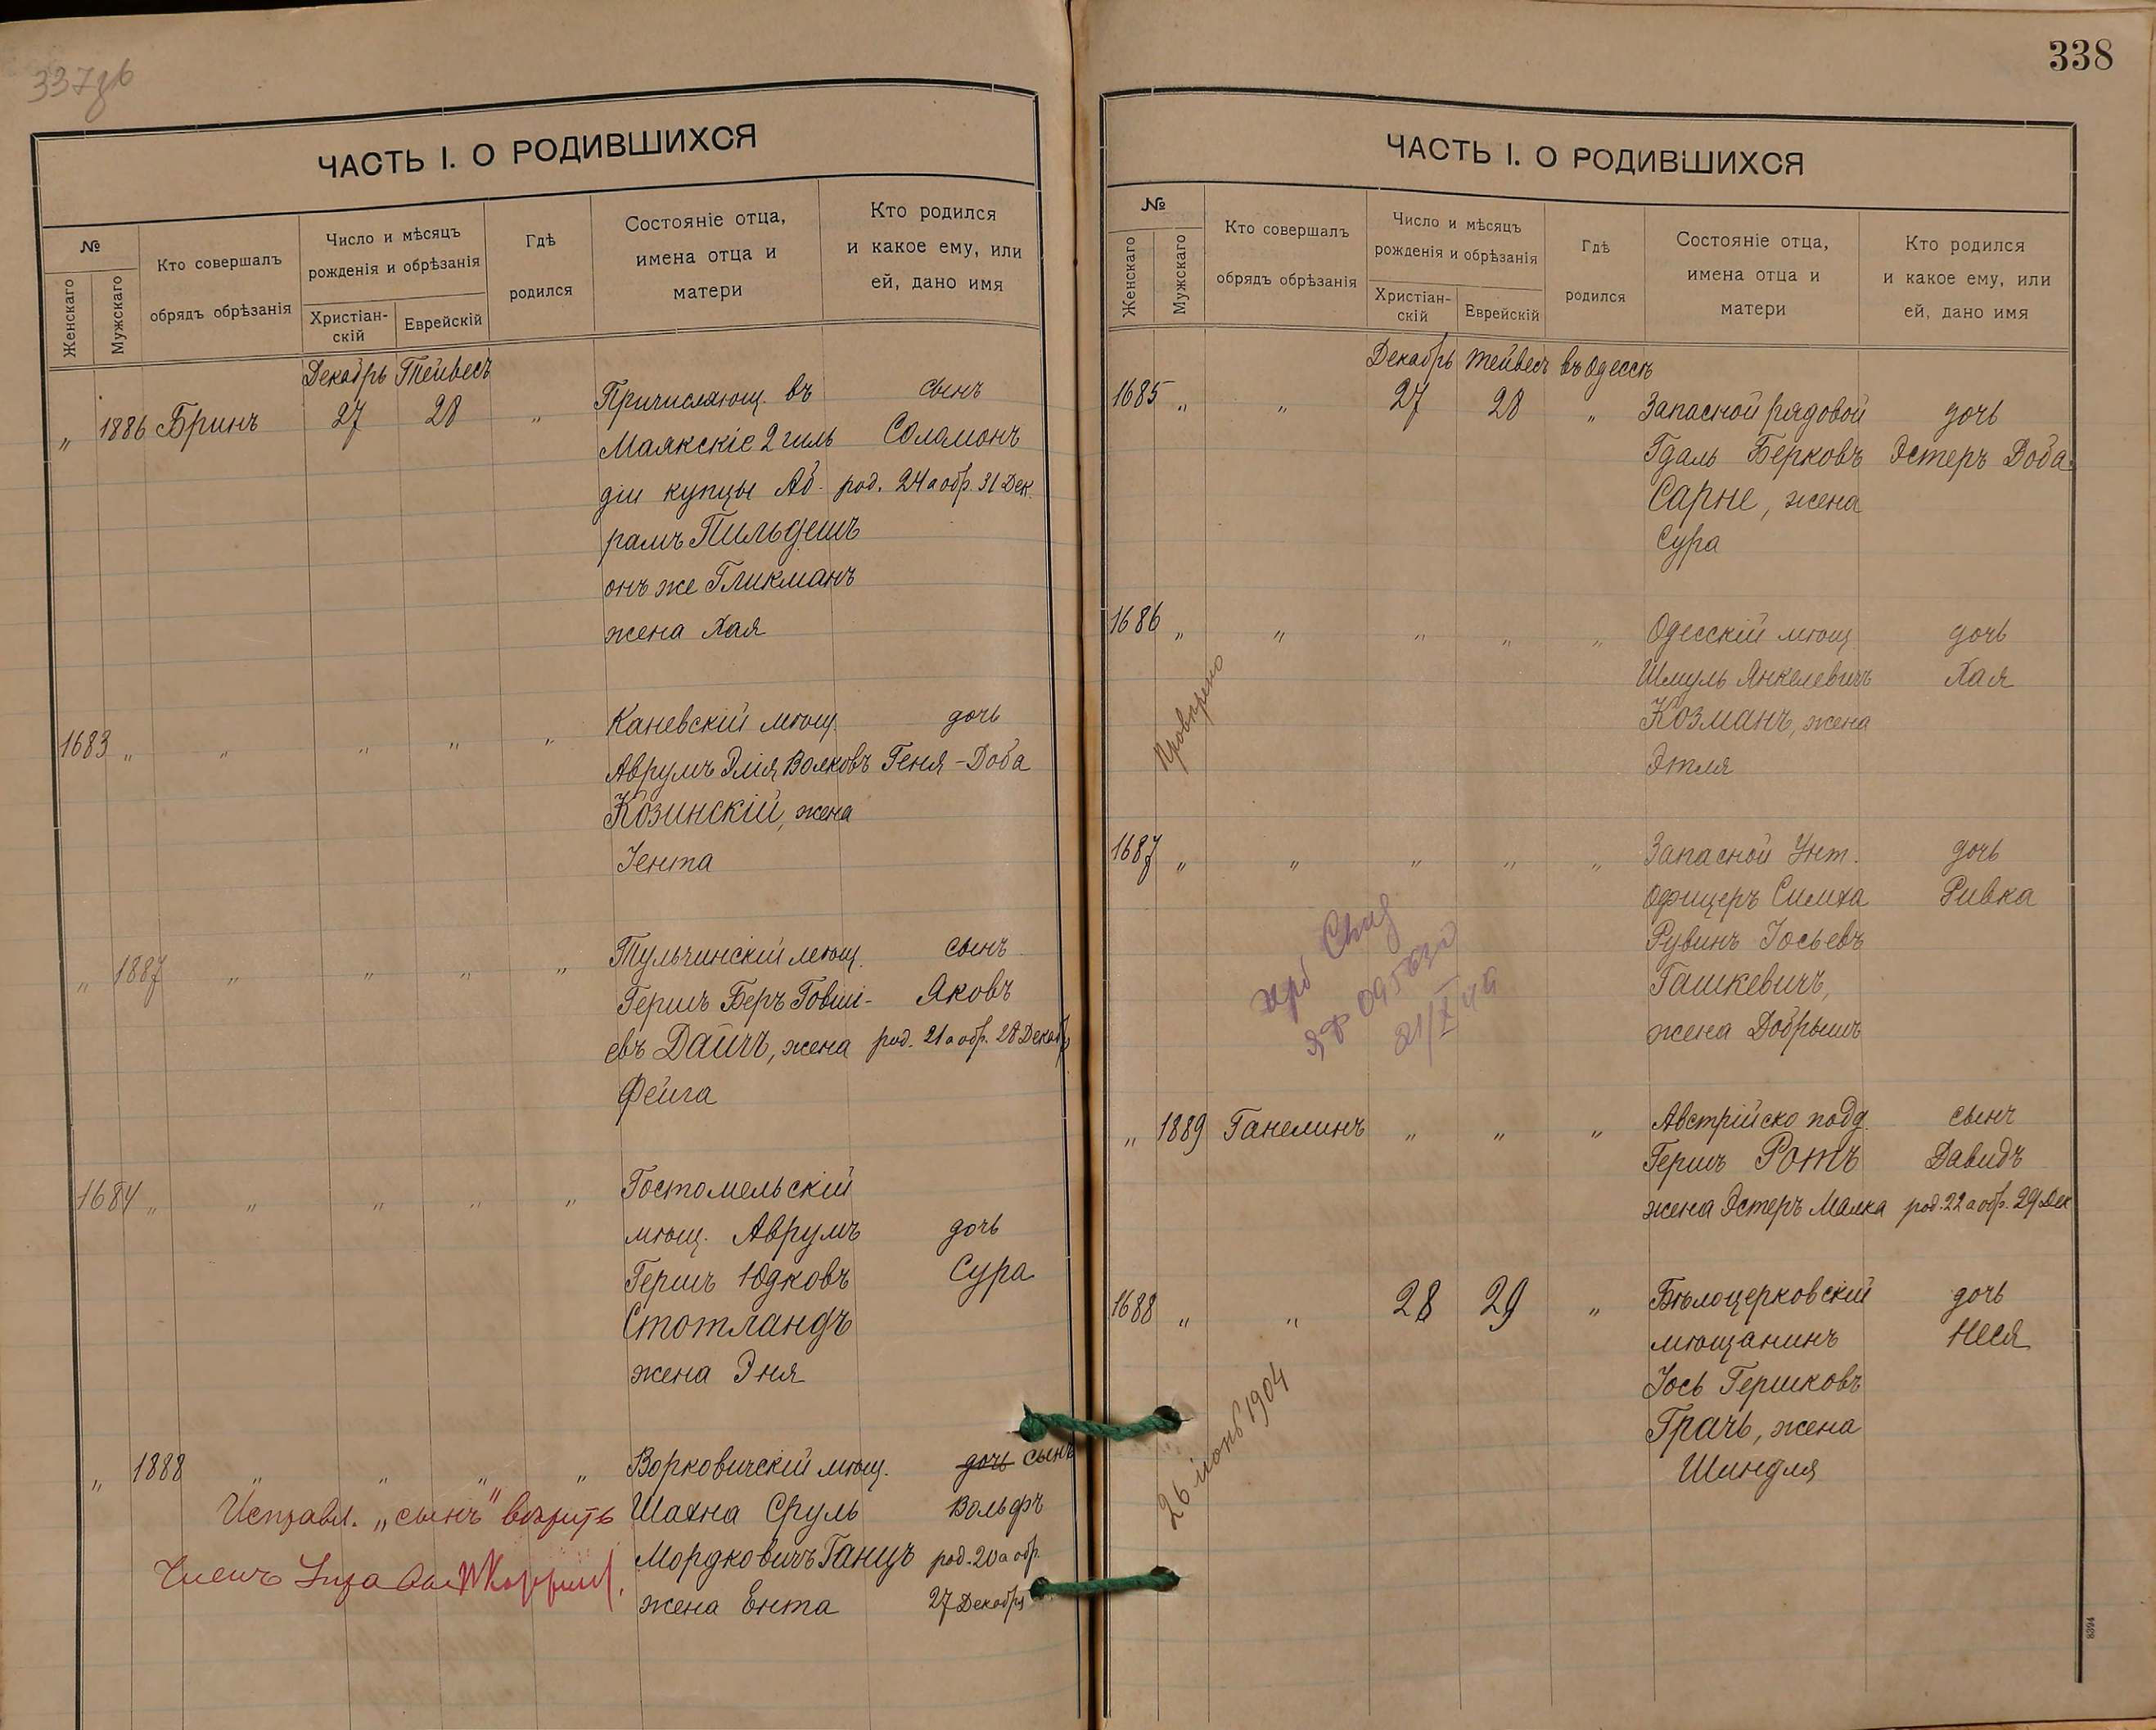 337об
ЧАСТЬ I. О РОДИВШИХСЯ
№
Женскаго
Мужскаго
Кто совершалъ
обрядъ обрѣзанія
Число и мѣсяцъ
рожденія и обрѣзанія
Христіан-
скій
Еврейскій
Гдѣ
родился
Состояніе отца,
имена отца и
матери
Кто родился
и какое ему, или
ей, дано имя
Декабрь Тейвесъ
„ 1886 Бринъ 27 28 „ Причисляющ. въ сынъ
Маякскіе 2 гиль Соломонъ
діи купцы Аб- род. 24 а обр. 31 Дек.
рамъ Пильдешъ
онъ же Гликманъ
жена Хая
1683 „ „ „ „ „ Каневскій мѣщ. дочь
Аврумъ Элія Волковъ Геня-Доба
Козинскій, жена
Іента
„ 1887 „ „ „ „ Тульчинскій мѣщ. сынъ
Гершъ Беръ Говші- Яковъ
евъ Дайчъ, жена род. 21 а обр. 28 Декабр
Фейга
1684 „ „ „ „ „ Гостомельскій
мѣщ. Аврумъ дочь
Гершъ Юдковъ Сура
Стотландъ
жена Эня
„ 1888 „ „ „ „ Ворковичскій мѣщ. дочь сынъ
Исправл. „сынъ" вѣрить Шахна Сруль Вольфъ
Членъ Мордковичъ Ганцъ род. 20 а обр.
жена Ента 27 Декабря
338
ЧАСТЬ I. О РОДИВШИХСЯ
№
Женскаго
Мужскаго
Кто совершалъ
обрядъ обрѣзанія
Число и мѣсяцъ
рожденія и обрѣзанія
Христіан-
скій
Еврейскій
Гдѣ
родился
Состояніе отца,
имена отца и
матери
Кто родился
и какое ему, или
ей, дано имя
Декабрь Тейвесъ въ Одессѣ
1685 „ „ 27 28 „ Запасной рядовой дочь
Гдаль Берковъ Эстеръ Доба
Сарне, жена
Сура
1686 „ „ „ „ „ Одесскій мѣщ. дочь
Шмуль Янкелевичъ Хая
Козманъ, жена
Этля
Провѣрено
1687 „ „ „ „ „ Запасной Унт. дочь
Офицеръ Симха Ривка
Рувинъ Іосьевъ
Гашкевичъ,
жена Добрышъ
„ 1889 Ганелинъ „ „ „ Австрійско подд. сынъ
Гершъ Ротъ Давидъ
жена Эстеръ Малка род. 22 а обр. 29 Дек
1688 „ „ 28 29 „ Бѣлоцерковскій дочь
мѣщанинъ Неся
Іось Гершковъ
Грачъ, жена
Шиндля
26 іюнь 1904
8394